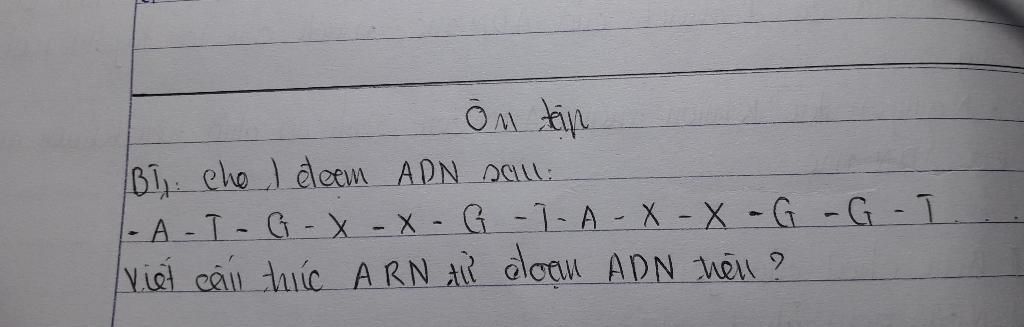 Ôn tập
BT1: cho 1 đoạn ADN sau:
- A - T - G - X - X - G - T - A - X - X - G - G - T . . .
Viết cấu trúc ARN từ đoạn ADN trên?